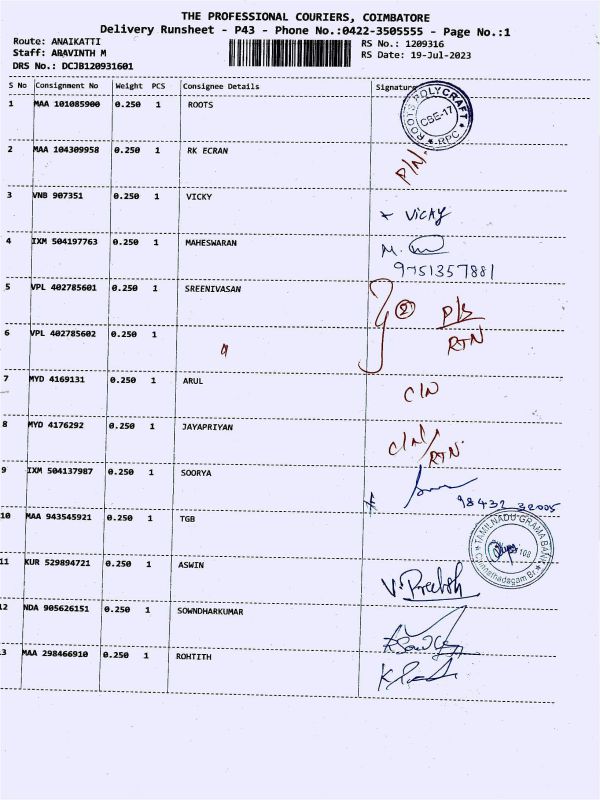 THE PROFESSIONAL COURIERS, COIMBATORE
Delivery Runsheet - P43 - Phone No.:0422-3505555 - Page No.:1
Route: ANAIKATTI RS No.: 1209316
Staff: ARAVINTH M RS Date: 19-Jul-2023
DRS No.: DCJB120931601
S No Consignment No Weight PCS Consignee Details Signature
1 MAA 101085900 0.250 1 ROOTS
ROOTS POLYCRAFT CBE-17 RPC
2 MAA 104309958 0.250 1 RK ECRAN P/N.
3 VNB 907351 0.250 1 VICKY
Vicky
4 IXM 504197763 0.250 1 MAHESWARAN M.
9751357881
5 VPL 402785601 0.250 1 SREENIVASAN
2
RTN
6 VPL 402785602 0.250 1
7 MYD 4169131 0.250 1 ARUL C/N
8 MYD 4176292 0.250 1 JAYAPRIYAN C/N/
RTN.
9 IXM 504137987 0.250 1 SOORYA
98432 32005
10 MAA 943545921 0.250 1 TGB
TAMILNADU GRAMA BANK 108 Br
11 KUR 529894721 0.250 1 ASWIN
12 NDA 905626151 0.250 1 SOWNDHARKUMAR
3 MAA 298466910 0.250 1 ROHTITH